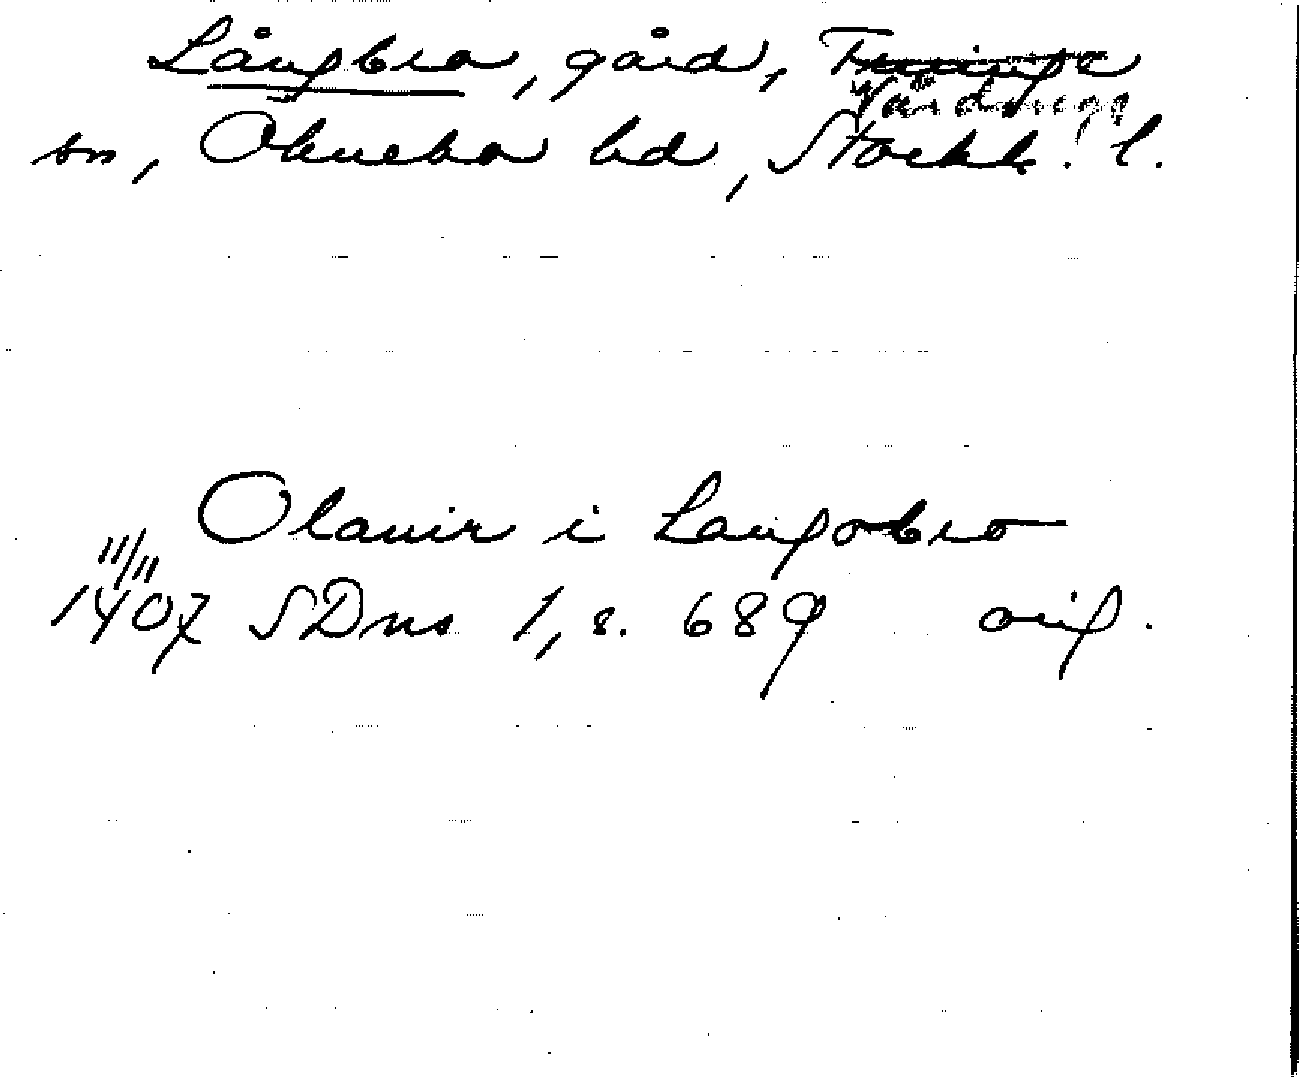 Långbro, gård, Turinge
Vårdinge
sn, Öknebo hd, Stockh. l.
Olauir i Langobro
11/11
1407 SDns 1, s. 689 orig.